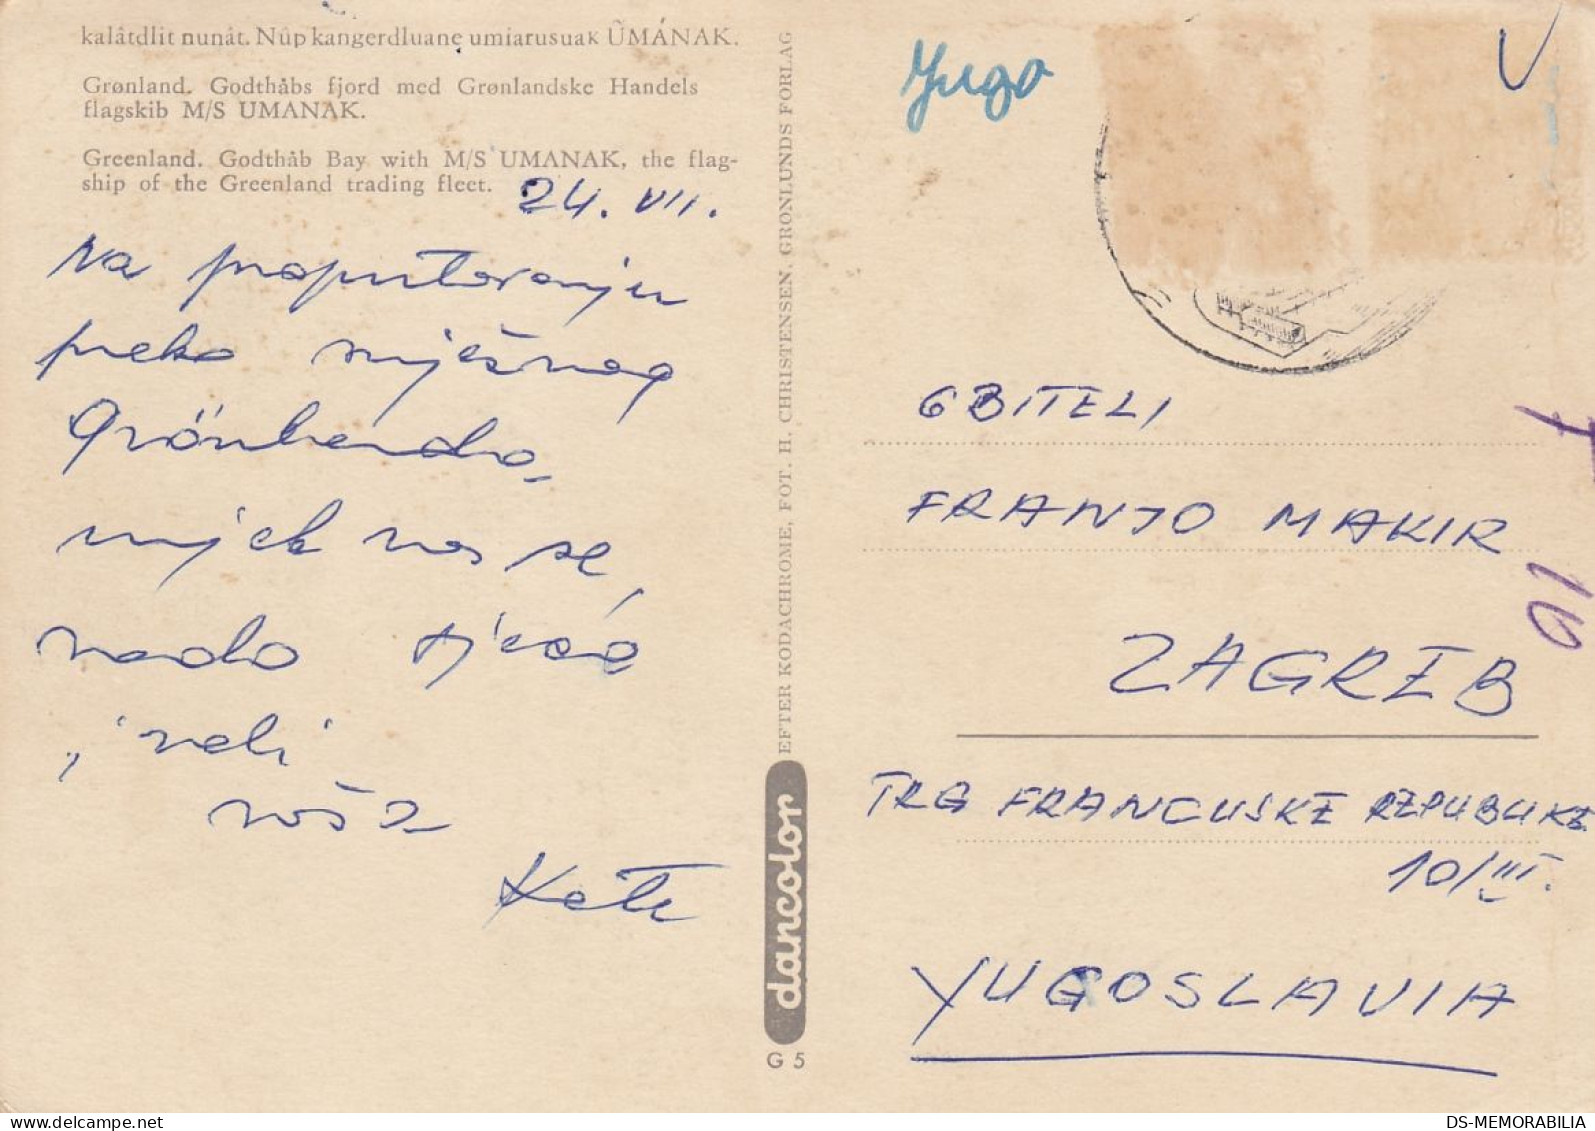 kalâtdlit nunât. Nûp kangerdluane umiarusuaK ŪMÁNAK.
Grønland. Godthåbs fjord med Grønlandske Handels
flagskib M/S UMANAK.
Greenland. Godthåb Bay with M/S UMANAK, the flag-
ship of the Greenland trading fleet.
24. VII.
Na proputovanju
preko snježnog
Grönlanda,
uvijek vas se
rado sjeća
i voli
vaša
Kate
EFTER KODACHROME, FOT. H. CHRISTENSEN. GRØNLUNDS FORLAG
dancolor
G 5
Yugo
OBITELJ
FRANJO MAKIR
ZAGREB
TRG FRANCUSKE REPUBLIKE
10/III.
YUGOSLAVIA
T
DS-MEMORABILIA